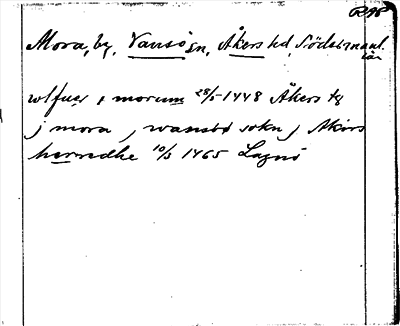 RAP
Mora, by, Vansö sn, Åkers hd, Södermanl.
län
wlfuer i morum 28/5 1448 Åkers tg
j mora j wansö sokn j Akers
herredhe 10/3 1465 Lagnö